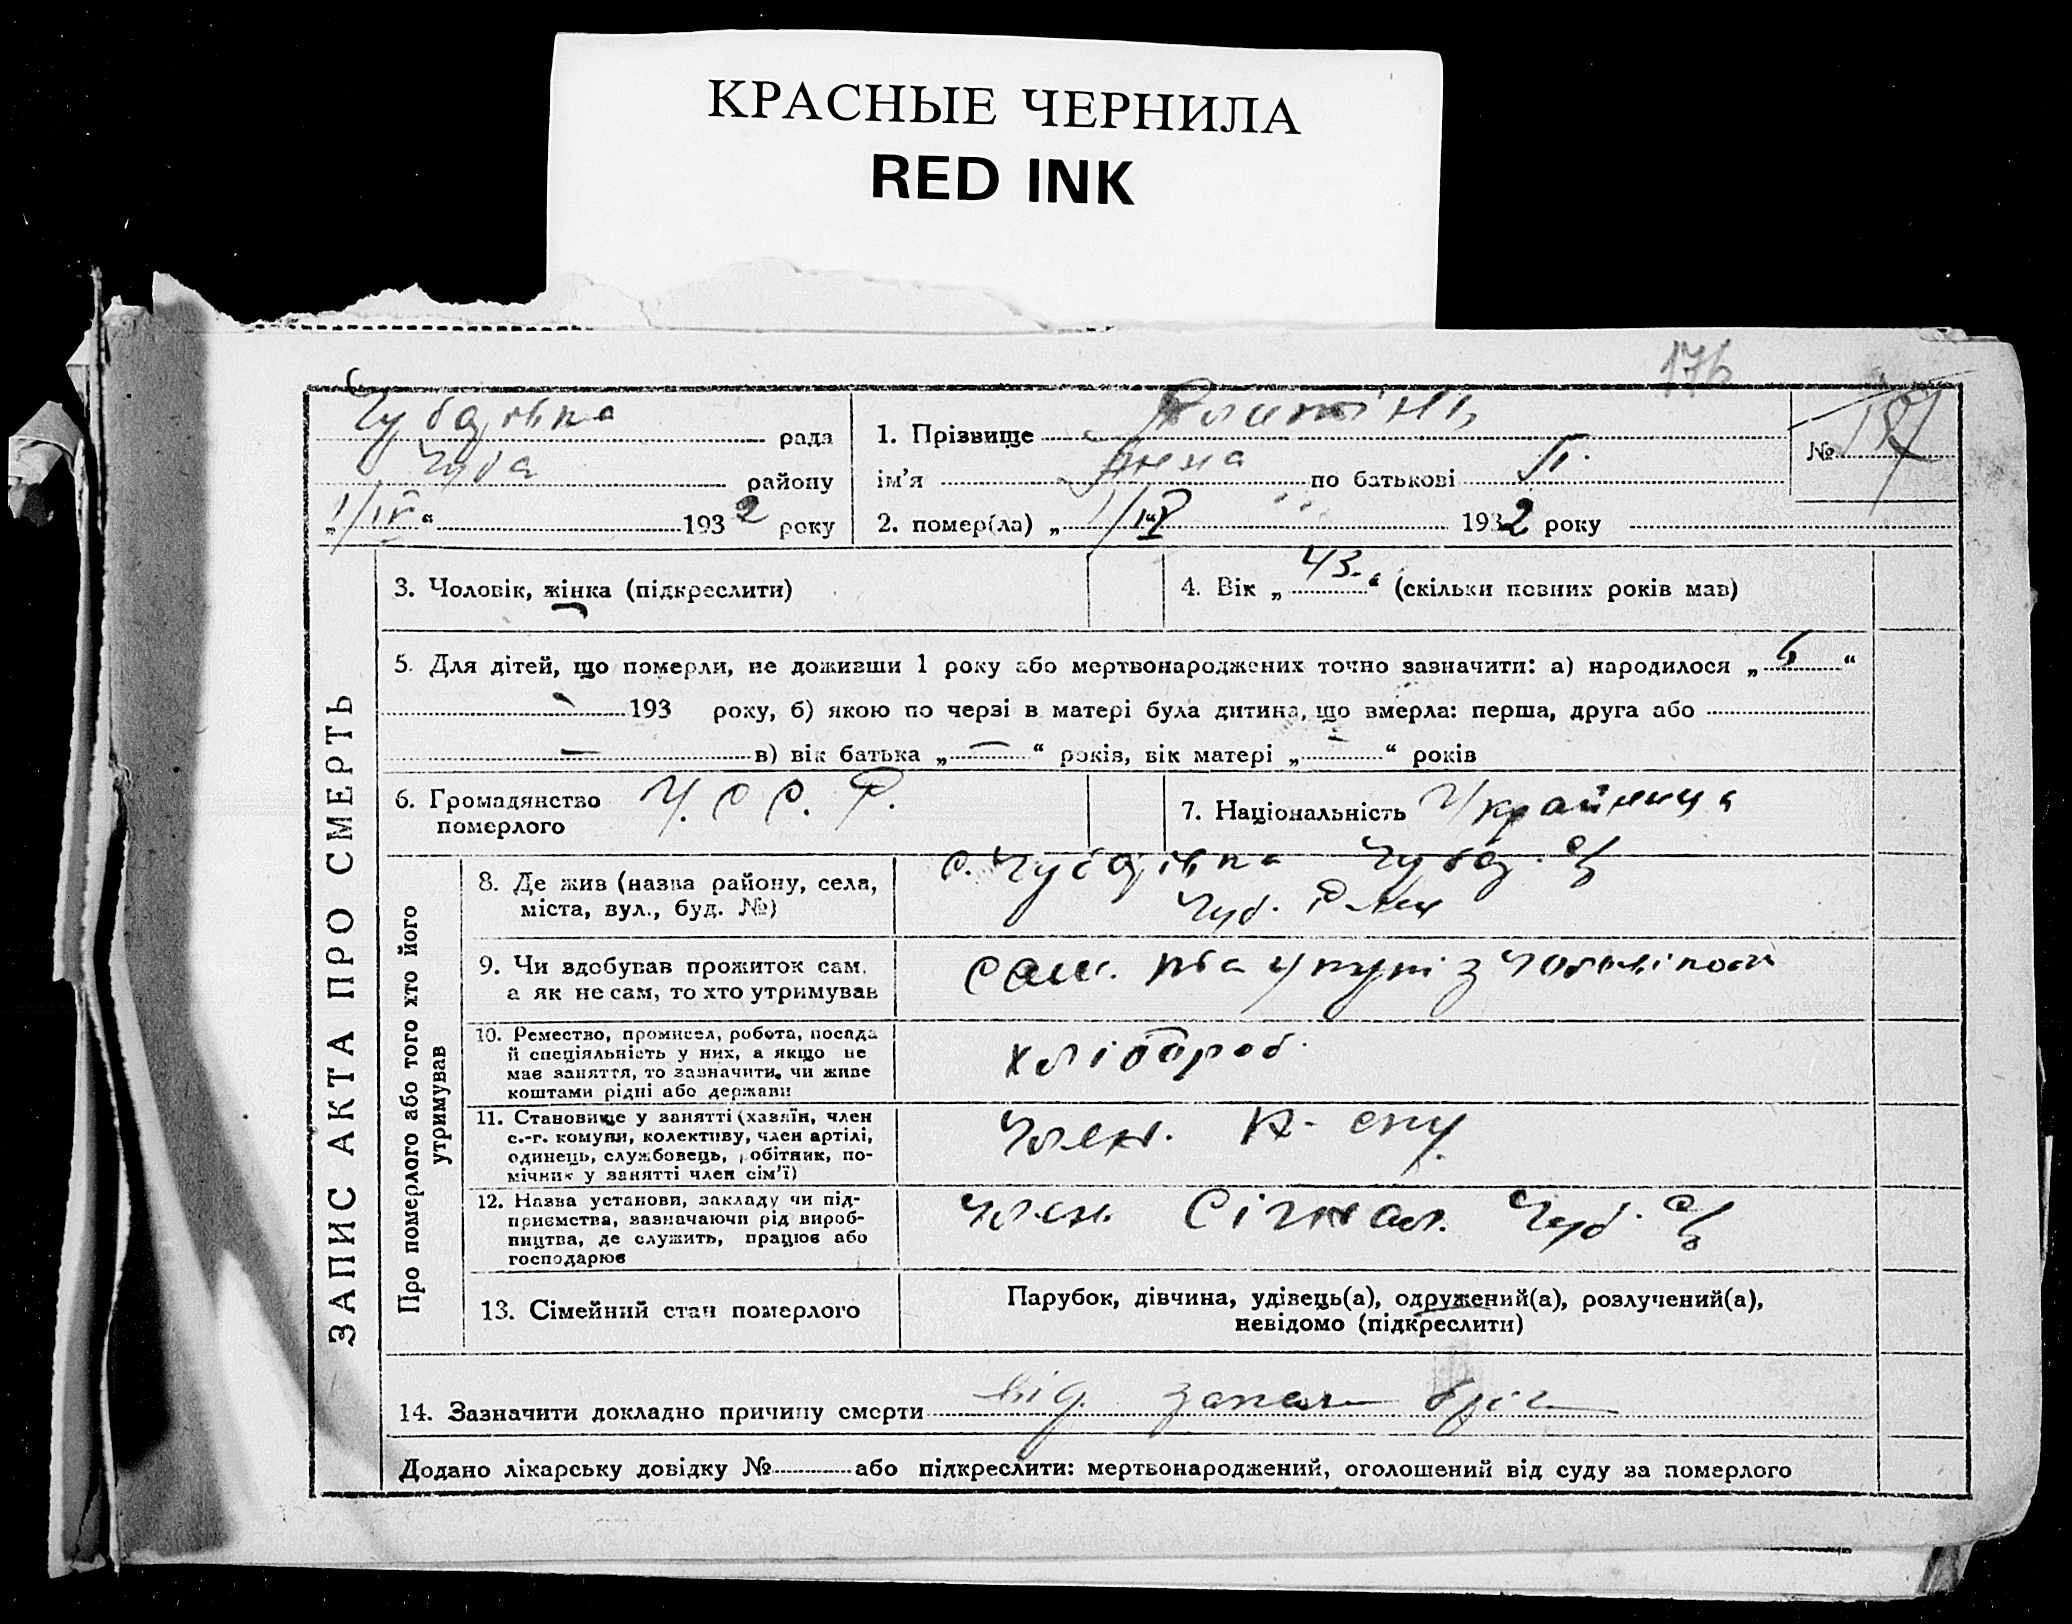 КРАСНЫЕ ЧЕРНИЛА
RED INK
176
Чубаївка рада
Чуба району
„1/IV“ 1932 року
1. Прізвище
ім'я Анна по батькові П.
2. помер(ла) „1/IV“ 1932 року
№ 187
ЗАПИС АКТА ПРО СМЕРТЬ
3. Чоловік, жінка (підкреслити)
4. Вік „43“ (скільки повних років мав)
5. Для дітей, що померли, не доживши 1 року або мертвонароджених точно зазначити: а) народилося „ “
193 року, б) якою по черзі в матері була дитина, що вмерла: перша, друга або
в) вік батька „—“ років, вік матері „ “ років
6. Громадянство У. С С. Р.
померлого
7. Національність Украйинца
Про померлого або того хто його
утримував
8. Де жив (назва району, села,
міста, вул., буд. №)
с. Чубаївка
Чуб.
9. Чи здобував прожиток сам,
а як не сам, то хто утримував
сам.
10. Ремество, промисел, робота, посада
й спеціяльність у них, а якщо не
має заняття, то зазначити, чи живе
коштами рідні або держави
хлібороб.
11. Становище у занятті (хазяїн, член
с.-г. комуни, колективу, член артілі,
одинець, службовець, робітник, по-
мічник у занятті член сім'ї)
Член. К-спу.
12. Назва установи, закладу чи під-
приємства, зазначаючи рід вироб-
ництва, де служить, працює або
господарює
член Сігнал. Чуб.
13. Сімейний стан померлого
Парубок, дівчина, удівець(а), одружений(а), розлучений(а),
невідомо (підкреслити)
14. Зазначити докладно причину смерти від запал
Додано лікарську довідку № або підкреслити: мертвонароджений, оголошений від суду за померлого